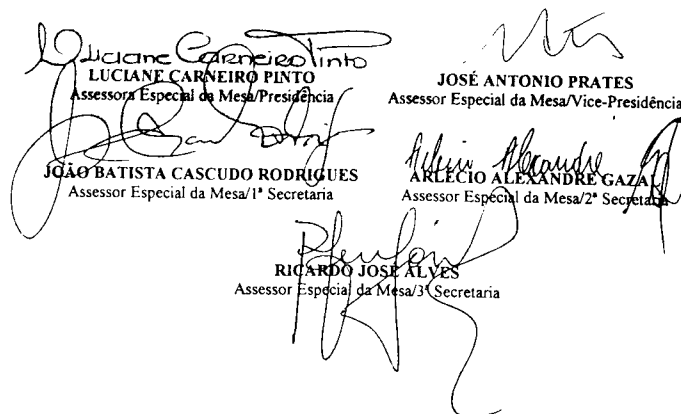 Luciane Carneiro Pinto
LUCIANE CARNEIRO PINTO
Assessora Especial da Mesa/Presidência
JOSÉ ANTONIO PRATES
Assessor Especial da Mesa/Vice-Presidência
JOÃO BATISTA CASCUDO RODRIGUES
Assessor Especial da Mesa/1ª Secretaria
ARLÉCIO ALEXANDRE GAZAL
Assessor Especial da Mesa/2ª Secretaria
RICARDO JOSÉ ALVES
Assessor Especial da Mesa/3ª Secretaria